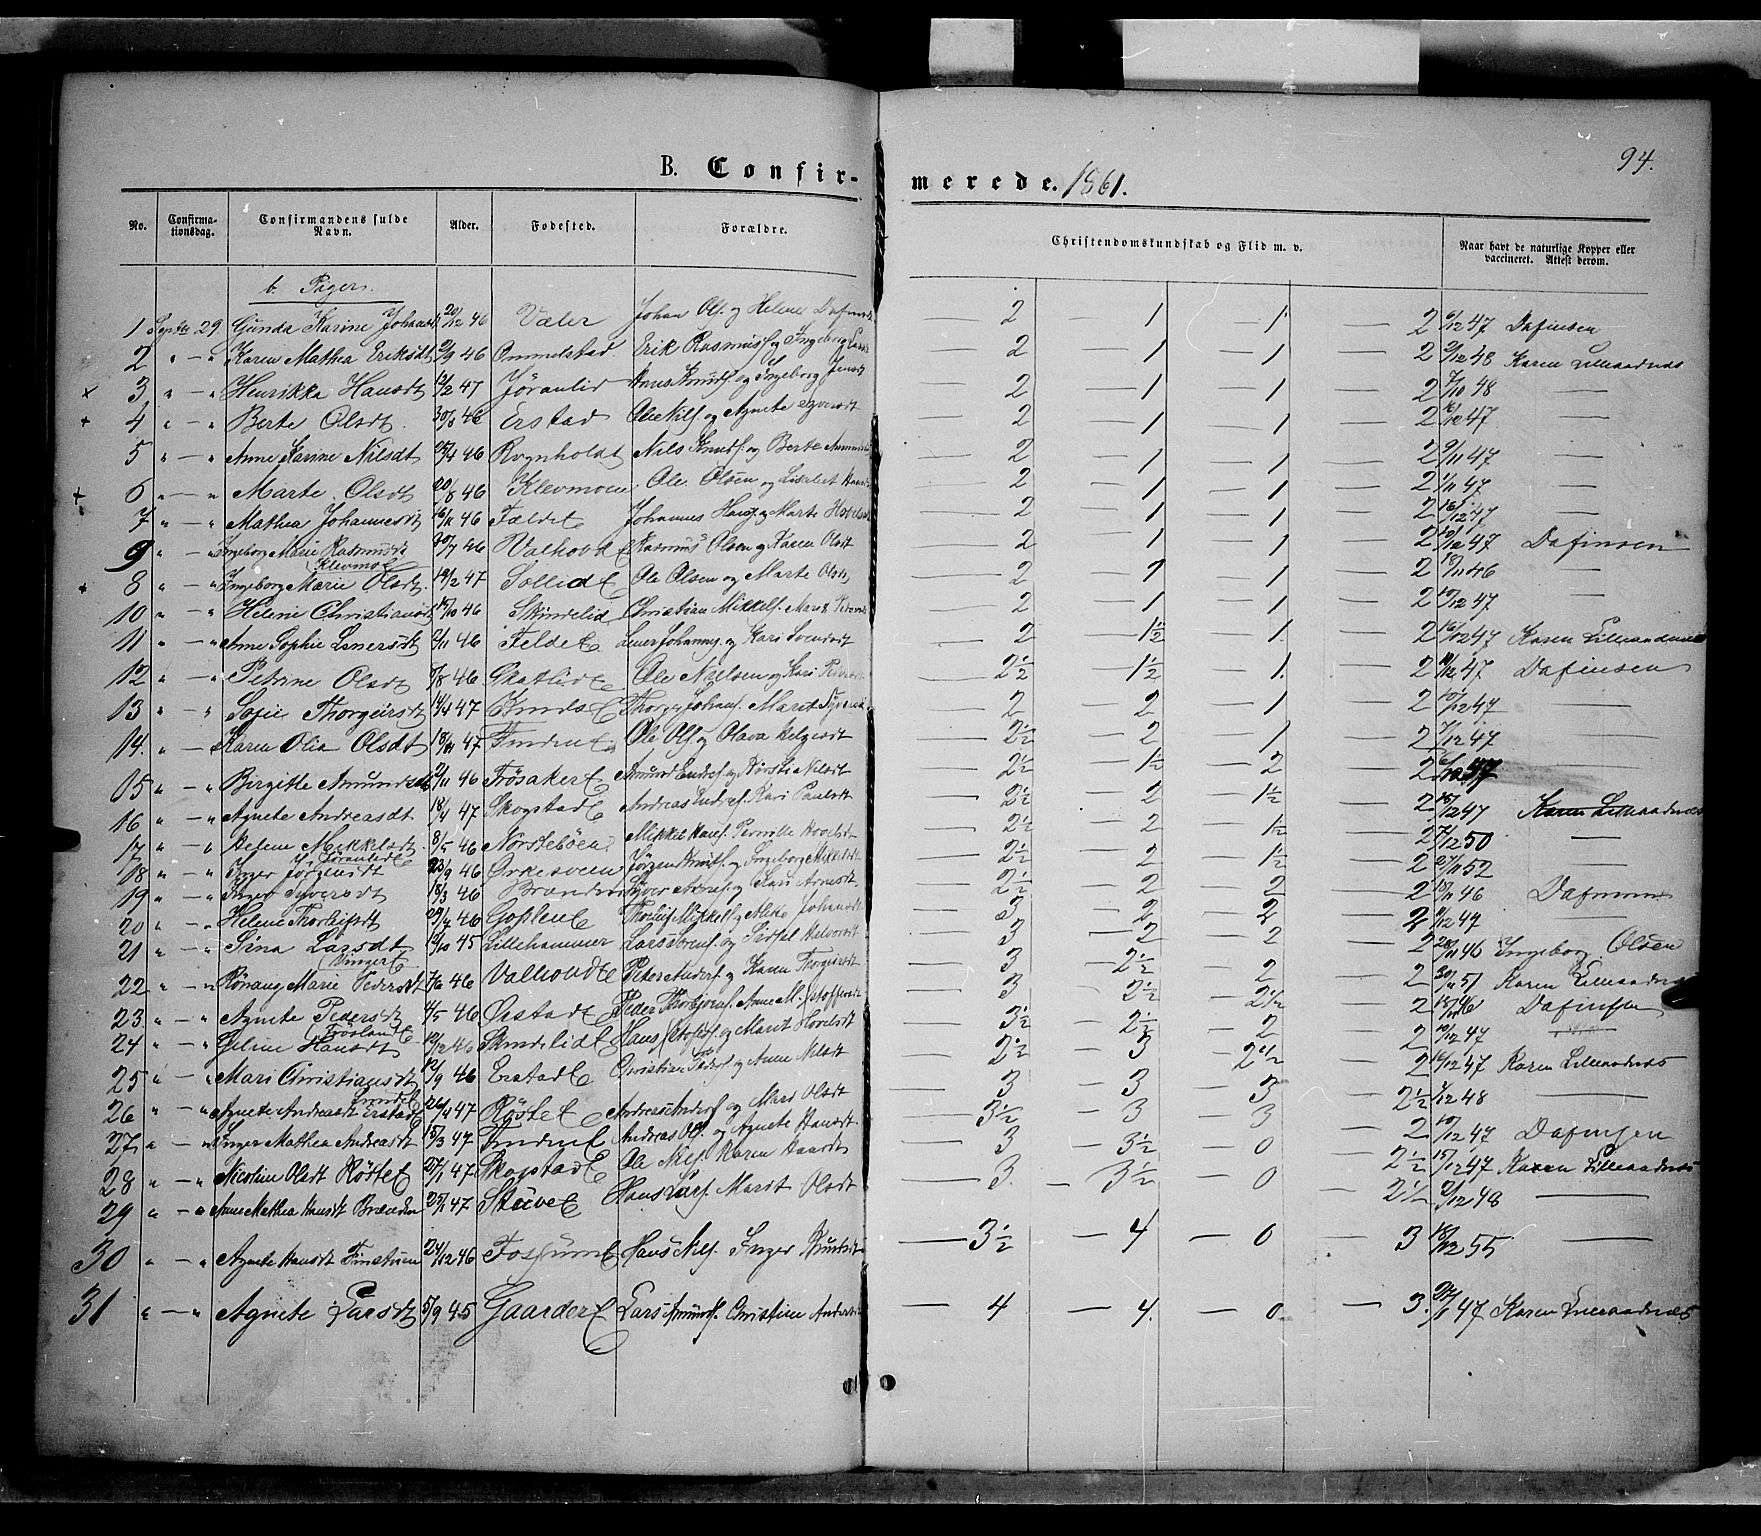 94.
B. Confir- merede. 1861.
No. Confirmationsdag. Confirmandens fulde Navn. Alder. Fødested. Forældre. Christendomskundskab og Flid m. v. Naar havt de naturlige Kopper eller vaccineret. Attest derom.
b. Piger.
1 Septbr 29 Gunda Karine 20/12 46 Væler Johan Ols. og Helene 2 1 1 2 6/12 47 Dafinsen
2 " — " Karen Mathea Eriksdt 46 Ommelstad Erik Rasmuss. og Ingeborg 2 1 1 2 48 Karen Lillesandnæs
3 " — " Henrikka Hansdt 12/2 47 Jøranlid Hans Knuds. og Ingeborg Jensdt 2 1 1 2 7/10 48 —
4 " — " Berte Olsdt. 46 Erstad Ole Nils. og Agnete 2 1 1 2 12 47 —
5 " — " Anne Karine Nilsdt 46 Rognholdt Nils Knuds. og Berte 2 1 1 2 9/11 47 —
6 " — " Marte Olsdt 20/8 46 Klevmoen Ole Olsen og Lisabet 2 1 1 2 1/11 47 —
7 " — " Mathea Johannesdt 16/11 46 Fældet Johannes Hans. og Marte 2 1 1 2 16/12 47 —
9 " — " Ingeborg Marie Rasmusdt 20/7 46 Valhovd E Rasmus Olsen og Karen Olsdt 2 1 1 2 10/12 47 Dafinsen
Klevmoe
8 " — " Ingeborg Marie Olsdt. 19/2 47 Sollid E Ole Olsen og Marte Olsdt 2 1 1 2 18/11 46 —
10 " — " Helene Christiansdt 46 Skindelid Christian Mikkels. Maren 2 1 1 2 10/12 47 —
11 " — " Anne Sophie 2/11 46 Feldet og Kari Svendsdt 2 1½ 1 2 16/12 47 Karen Lillesandnæs
12 " — " Petrine Olsdt 7/8 46 Ole Nielsen og Kari 2½ 1½ 1. 2 12 47 Dafinsen
13 " — " Sofie Thorgeirsdt 14/4 47 Knuds E Thorg. Johans. Marit 2 2 1 2 12 47 —
14. " — " Karen Olia Olsdt 47 Findne E Ole Ols. og Olava Helgesdt 2½ 2 1 2 7/12 47 —
15 " — " Birgitte Amundsdt 2/11 46 Frøsaker E Amund Endres. og Kjersti Nilsdt 2½ 1½ 2 2 47
16 " — " Agnete Andreasdt 18/4 47 Skogstad E Andreas Kari Paulsdt 2½ 2 1½ 2 15/12 47 Karen Lillesandnæs
17 " — " Helene Mikkelsdt. 8/5 46 Norstebøen Mikkel Hans. Pernille Hovelsdt 2½ 2 1½ 2 12 50 —
Jøranlid E
18 " — " Inger Jørgensdt 23/9 46 Ørkesveen Jørgen Knuds. og Ingeborg Mikkelsdt 2½ 2 1½ 2 27/11 52 —
19 " — " Inger Syversdt 18/3 46 Syver Arnes. og Kari Arnesdt 2½ 2 2 2 46 Dafinsen
20 " — " Helene Thorleifsdt 46 Goplen E Thorleif Mikkels. og Johansdt 3 2 2 2 12 47 —
21 " — " Sina Larsdt 12/10 45 Lillehammer Lars Sørens. og Sidsel Halvorsdt 3 2 2 2 28/11 46 Ingeborg Olsen
Vinger E
22 " — " Rønnaug Marie Pedersdt 7/6 46 Valhovd E Peter Anders. og Karen Thorgeirsdt 3 2½ 2 2 30/11 51 Karen Lillesandnæs
23. " — " Agnete Pedersdt 4/5 46 Ørstad E Peder Thorbjørns. Anne M. 3 2½ 2½ 2 46 Dafinsen
Frøsland E
24 " — " Hansdt 12/12 46 Skindelid E Hans og Marit Hovelsdt 3½ 2½ 2 2 10/12 47
25 " — " Mari Christiansdt 12/9 46 Erstad E Christian Peders. og Anne Nilsdt 2½ 3 2½ 2 16/12 47 Karen Lillesandnæs
26 " — " Agnete Andreasdt Erstad E 26/4 47 Røste E Andreas Anders. og Mari Olsdt 3 3 3 2½ 12 48 —
27 " — " Inger Mathea Andreasdt 15/3 47 Findne E Andreas Ols. og Agnete Hansdt 3½ 3 3 2 10/12 47 Dafinsen
28 " — " Nicoline Olsdt Røste E 27/1 47 Skogstad E Ole Nils. Karen Hansdt 3 3½ 0 2½ 15/12 47 Karen Lillesandnæs
29 " — " Anne Mathea Hansdt Brænden 25/1 47 Støve E Hans Lars. Marit Olsdt 3. 3½ 0 2½ 12 48 —
30 " — " Agnete Hansdt Finstuen 24/12 46 Fossum E Hans Nils. Inger Knutsdt 3½ 4 0 3 18/12 55 —
31 " — " Agnete Larsdt 5/9 45 Gaarder E Lars Amunds. Christine Andersdt 4 4. 0 3. 47 Karen Lillesandnæs